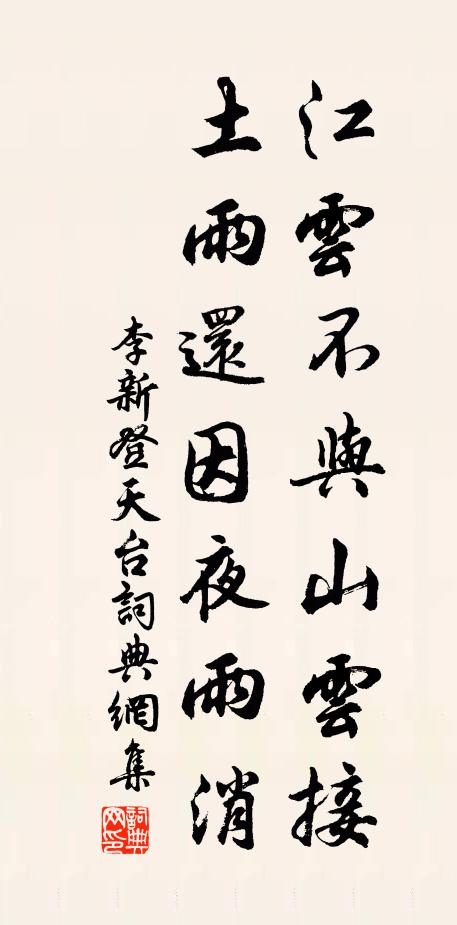 江雲不與山雲接
土雨還因夜雨消
李新登天台詞典網集
詞典網印